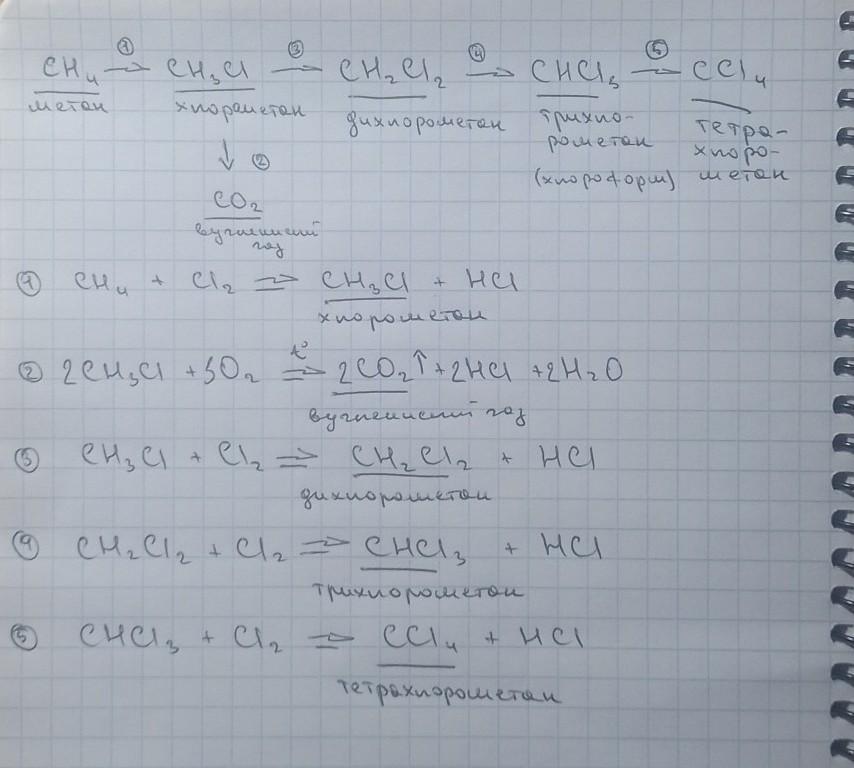 CH₄ →① CH₃Cl →③ CH₂Cl₂ →④ CHCl₃ →⑤ CCl₄
метан хлорометан дихлорометан трихло- тетра-
рометан хлоро-
(хлороформ) метан
↓ ②
CO₂
вуглекислий
газ
① CH₄ + Cl₂ ⇒ CH₃Cl + HCl
хлорометан
② 2CH₃Cl + 3O₂ ⇒ t° 2CO₂↑ + 2HCl + 2H₂O
вуглекислий газ
③ CH₃Cl + Cl₂ ⇒ CH₂Cl₂ + HCl
дихлорометан
④ CH₂Cl₂ + Cl₂ ⇒ CHCl₃ + HCl
трихлорометан
⑤ CHCl₃ + Cl₂ ⇒ CCl₄ + HCl
тетрахлорометан